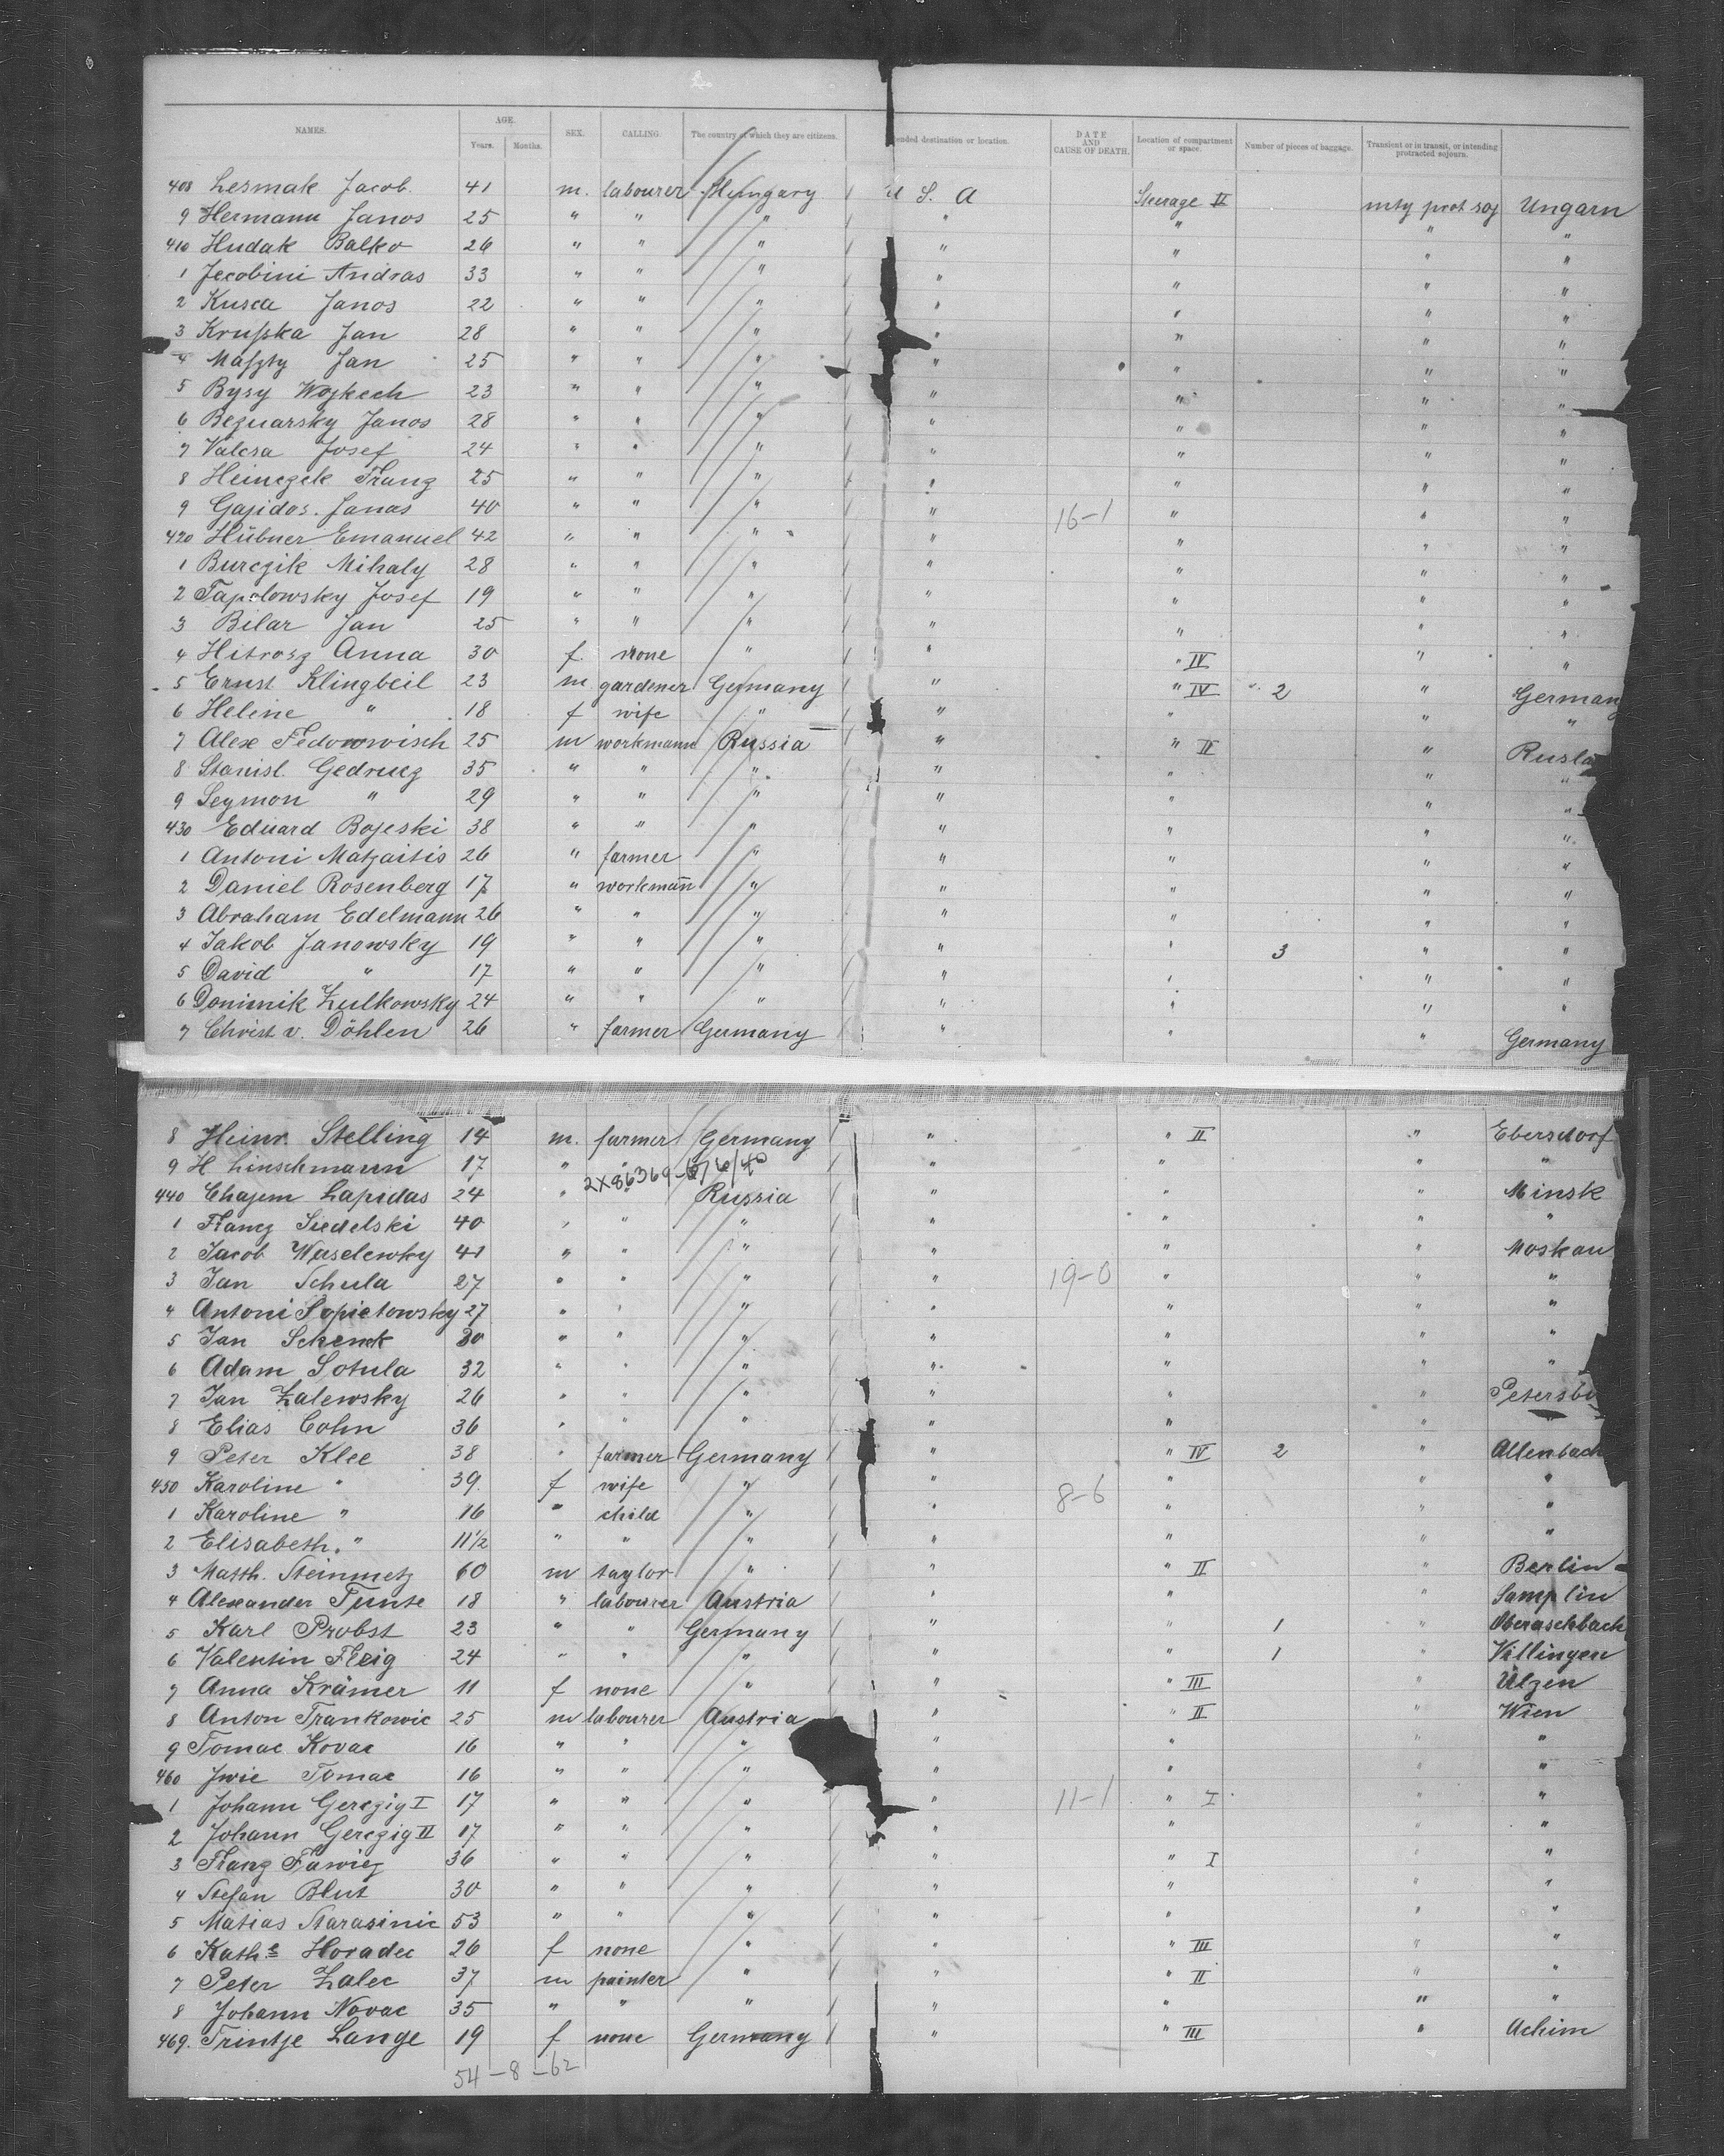 NAMES. AGE. Years. Months. SEX. CALLING. The country of which they are citizens. ended destination or location. DATE AND CAUSE OF DEATH. Location of compartment or space. Number of pieces of baggage. Transient or in transit, or intending protracted sojourn.
408 Lesmak Jacob 41 m. labourer Hungary U S. A Steerage II intg prot soj Ungarn
9 Hermann Janos 25 " " " " " " "
410 Hudak Balko 26 " " " " " " "
1 Jecobini Andras 33 " " " " " " "
2 Kusca Janos 22 " " " " " " "
3 Krupska Jan 28 " " " " " " "
4 Maszty Jan 25 " " " " " " "
5 Bysy Wojkech 23 " " " " " " "
6 Beznarsky Janos 28 " " " " " " "
7 Valcsa Josef 24 " " " " " " "
8 Heinczek Franz 25 " " " " " " "
9 Gajidos Janas 40 " " " " 16-1 " " "
420 Hübner Emanuel 42 " " " " " " "
1 Burczik Mihaly 28 " " " " " " "
2 Tapolowsky Josef 19 " " " " " " "
3 Bilar Jan 25 " " " " " " "
4 Hitrosz Anna 30 f. none " " " IV " "
5 Ernst Klingbeil 23 m gardener Germany " " IV 2 " German
6 Helene " 18 f wife " " " " "
7 Alex Fedorowisch 25 m workmann Russia " " II " Rusla
8 Stanisl. Gedrucz 35 " " " " " " "
9 Seymon " 29 " " " " " " "
430 Eduard Bojeski 38 " " " " " " "
1 Antoni Matzaitis 26 " farmer " " " " "
2 Daniel Rosenberg 17 " workman " " " " "
3 Abraham Edelmann 26 " " " " " " "
4 Jakob Janowsky 19 " " " " " 3 " "
5 David " 17 " " " " " " "
6 Dominik Zulkowsky 24 " " " " " " "
7 Christ v. Döhlen 26 " farmer Germany " " " Germany
8 Heinr. Stelling 14 m. farmer Germany " " II " Ebersdorf
9 H Linschmann 17 " " " " " "
2X86369-6/6/40
440 Chajem Lapidas 24 " " Russia " " " Minsk
1 Franz Siedelski 40 " " " " " " "
2 Jacob Waselewky 41 " " " " " " Moskau
3 Jan Schula 27 " " " " 19-0 " " "
4 Antoni Sopietowsky 27 " " " " " " "
5 Jan Schenck 30 " " " " " " "
6 Adam Sotula 32 " " " " " " "
7 Jan Zalewsky 26 " " " " " " Petersbu
8 Elias Cohn 36 " " " " " "
9 Peter Klee 38 " farmer Germany " " IV 2 " Allenbach
450 Karoline " 39. f wife " " 8-6 " " "
1 Karoline " 16 " child " " " " "
2 Elisabeth. " 11 1/2 " " " " " " "
3 Matth. Steinmetz 60 m taylor " " " II " Berlin
4 Alexander Funte 18 " labourer Austria " " " Samplin
5 Karl Probst 23 " " Germany " " 1 " Oberaschbach
6 Valentin Fleig 24 " " " " " 1 " Villingen
7 Anna Krämer 11 f none " " " III " Ülzen
8 Anton Trankowic 25 m labourer Austria " " II " Wien
9 Tomac Kovac 16 " " " " " " "
460 Jvic Tomac 16 " " " " " " "
1 Johann Gerczig I 17 " " " " 11-1 " I " "
2 Johann Gerczig II 17 " " " " " " "
3 Franz Fawicz 36 " " " " " I " "
4 Stefan Blut 30 " " " " " " "
5 Matias Starasinic 53 " " " " " " "
6 Kath.e Horadec 26 f none " " " III " "
7 Peter Zalec 37 m painter " " " II " "
8 Johann Novac 35 " " " " " " "
469. Trintje Lange 19 f none Germany " " III " Achim
54-8-62